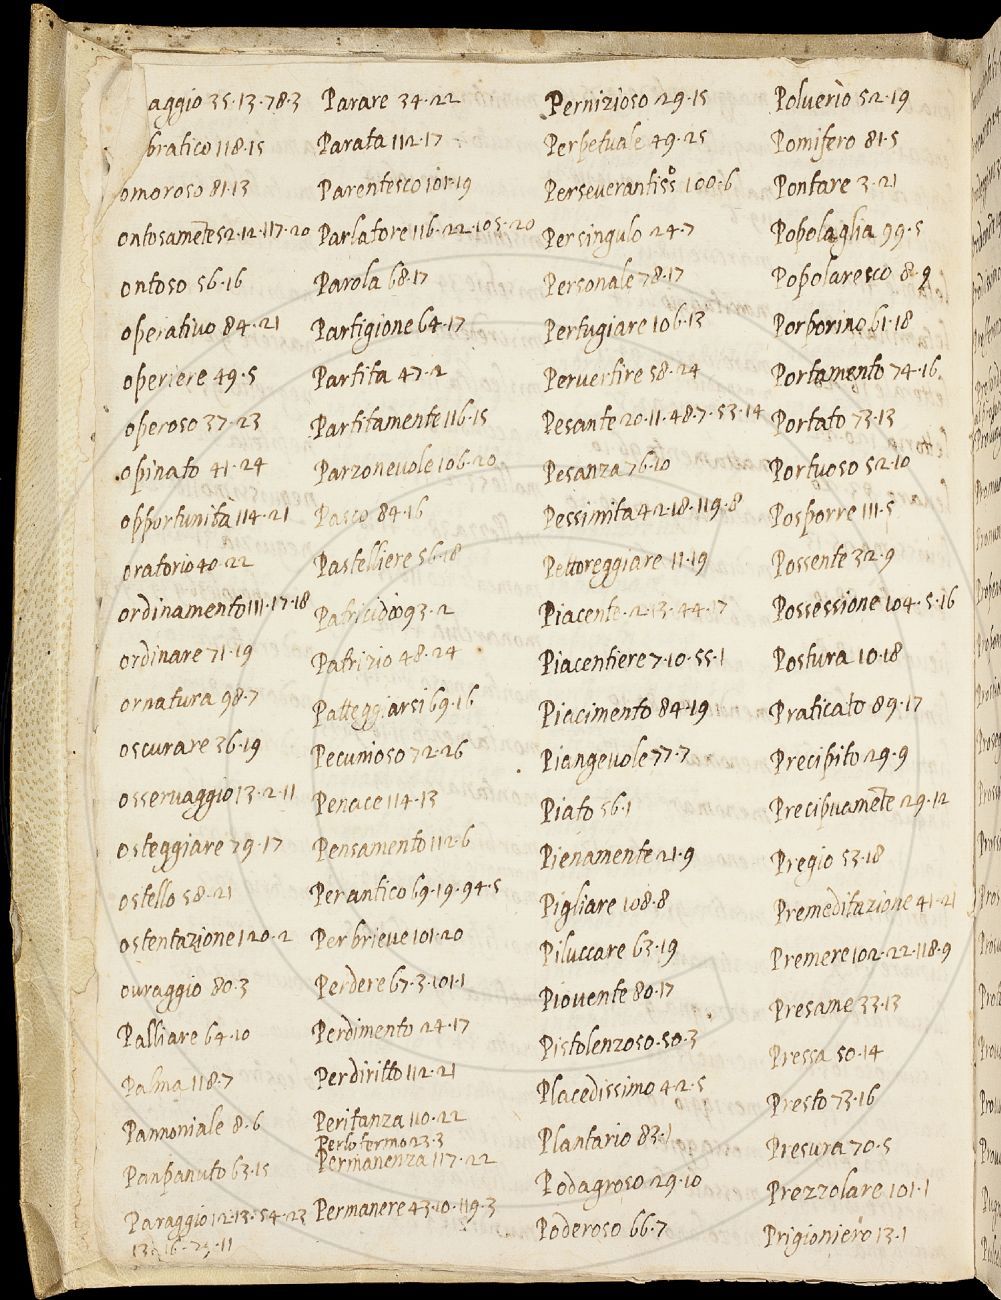 aggio 35·13·78·3
bratico 118·15
omoroso 81·13
ontosamẽte 52·12·117·20
ontoso 56·16
operatiuo 84·21
operiere 49·5
operoso 37·23
opinato 41·24
opportunità 114·21
oratorio 40·22
ordinamento 111·17·18
ordinare 71·19
ornatura 98·7
oscurare 36·19
osseruaggio 13·2·11
osteggiare 79·17
ostello 58·21
ostentazione 120·2
ouraggio 80·3
Palliare 64·10
Palma 118·7
Pannoniale 8·6
Panpanuto 63·15
Paraggio 12·13·54·23
Parare 34·22
Parata 112·17
Parentesco 101·19
Parlatore 116·22·105·20
Parola 68·17
Partigione 64·17
Partita 47·2
Partitamente 116·15
Parzoneuole 106·20
Pasco 84·16
Pastelliere 56·18
Patricidio 93·2
Patrizio 48·24
Patteggiarsi 69·16
Pecunioso 72·26
Penace 114·13
Pensamento 112·6
Per antico 69·19·94·5
Per brieue 101·20
Perdere 67·3·101·1
Perdimento 24·17
Perdiritto 112·21
Peritanza 110·22
Perlo fermo 23·3
Permanenza 117·22
Permanere 43·10·119·3
Pernizioso 29·15
Perpetuale 49·25
Perseverantissº 100·6
Persingulo 24·7
Personale 78·17
Pertugiare 106·13
Peruertire 58·24
Pesante 20·11·48·7·53·14
Pesanza 76·10
Pessimità 42·18·119·8
Pettoreggiare 11·19
Piacente 2·13·44·17
Piacentiere 7·10·55·1
Piacimento 84·19
Piangeuole 77·7
Piato 56·1
Pienamente 21·9
Pigliare 108·8
Piluccare 63·19
Piouente 80·17
Pistolenzoso 50·3
Placedissimo 42·5
Plantario 83·1
Podagroso 29·10
Poderoso 66·7
Poluerìo 52·19
Pomifero 81·5
Pontare 3·21
Popolaglia 99·5
Popolaresco 8·9
Porporino 61·18
Portamento 74·16
Portato 73·13
Portuoso 52·10
Posporre 111·5
Possente 32·9
Possessione 104·5·16
Postura 10·18
Praticato 89·17
Precipito 29·9
Precipuamẽte 29·12
Pregio 53·18
Premeditazione 41·21
Premere 102·22·118·9
Presame 33·13
Pressa 50·14
Presto 73·16
Presura 70·5
Prezzolare 101·1
Prigioniero 13·1